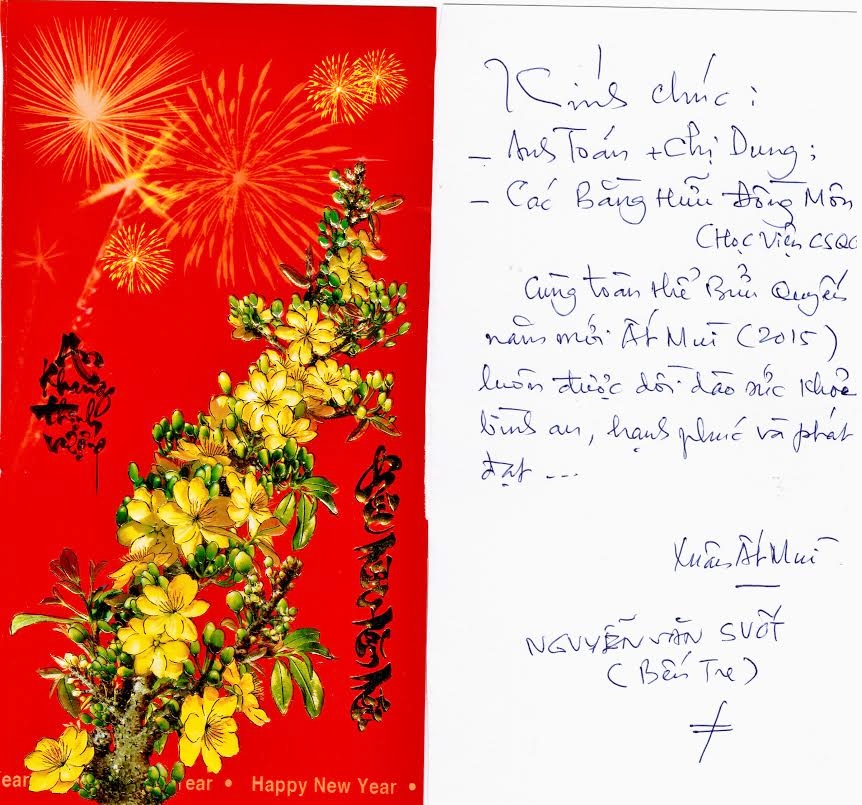 An
Khang
thịnh
vượng
Chúc Mừng Năm Mới
ear
ear • Happy New Year •
Kính chúc :
- Anh Toán + Chị Dung ;
- Các Bằng Hữu Đồng Môn
(Học Viện CSQG
Cùng toàn thể Bửu Quyến
năm mới Ất Mùi (2015)
luôn được dồi dào sức khoẻ
bình an, hạnh phúc và phát
đạt ...
Xuân Ất Mùi
NGUYỄN VĂN SUỐT
(Bến Tre)